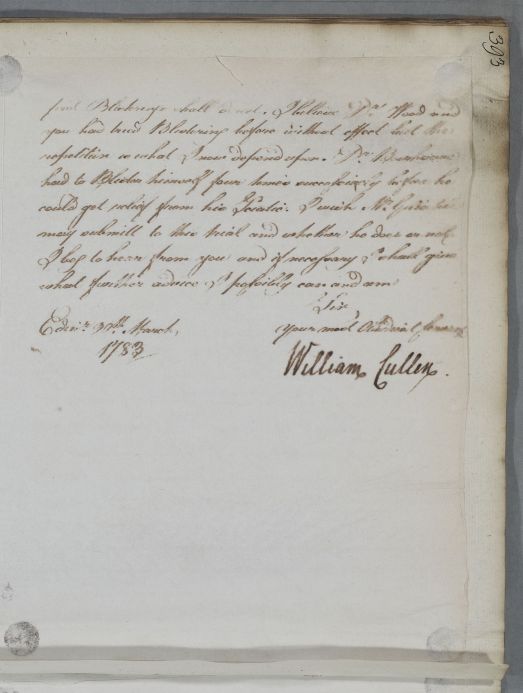 393
Blisterings shall do not. I believe Dr. Wood and
you had tried Blistering before without effect but the
repetition is what I now depend upon. Dr.
had to Blister himself four times successively before he
could get relief from his Sciatic. I wish Mr.
may submitt to this trial and whether he does or not
I beg to hear from you and if necessary I shall give
what further advice I possibly can and am
Sir
Edinr. March, your most Obedient Servant
1783
William Cullen.